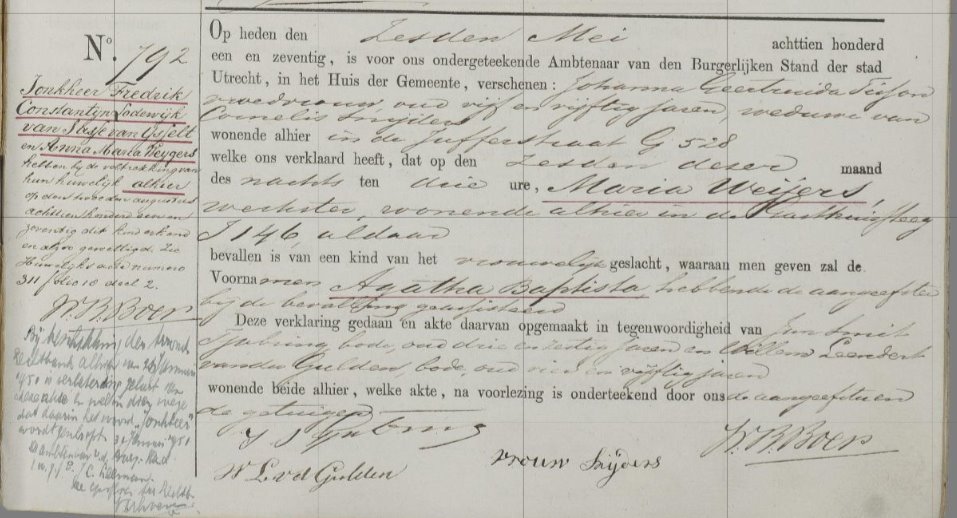 N.º 792
Jonkheer Fredrik
Constantyn Lodewijk
van Stasje van Ysselt
en Anna Maria Weygers
hebben bij de voltrekking van
hun huwelijk alhier
op den tweeden augustus
achttien honderd een en
zeventig dit kind erkend
en alzoo gewettigd. Zie
Huwelijks acte numero
311 folio 10 deel 2.
W. B. Boers
Bij beschikking der Arrond.
Rechtbank alhier van
1950 is verbetering gelast van
deze akte in
dat daarin het woord "Jonkheer"
wordt
Op heden den Zesden Mei achttien honderd
een en zeventig, is voor ons ondergeteekende Ambtenaar van den Burgerlijken Stand der stad
Utrecht, in het Huis der Gemeente, verschenen: Johanna Geertruida
vroedvrouw, oud vijf en vijftig jaren, weduwe van
Cornelis Snijders
wonende alhier in de Jufferstraat G 528
welke ons verklaard heeft, dat op den Zesden dezer maand
des nachts ten drie ure, Maria Weijers,
werkster, wonende alhier in de
I 146, aldaar
bevallen is van een kind van het vrouwelijk geslacht, waaraan men geven zal de
Voornamen Agatha Baptista, hebbende de aangeefster
bij de bevalling geassisteerd
Deze verklaring gedaan en akte daarvan opgemaakt in tegenwoordigheid van Jan Smit
bode, oud drie en zestig jaren en Willem Leendert
van der Gulden, bode, oud vier en vijftig jaren
wonende beide alhier, welke akte, na voorlezing is onderteekend door ons de aangeefster en
de getuigen
W L vd Gulden
vrouw Snijders
W. B. Boers